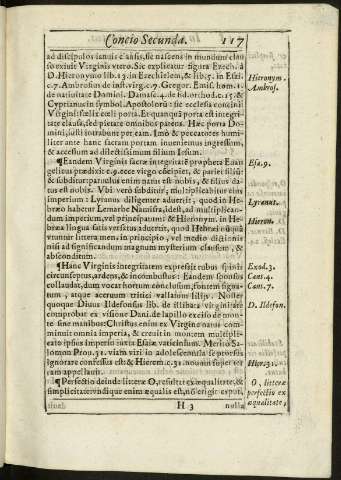 Concio Secunda. 117
ad discipulos ianuis clausis, sic nascens in mundum clau
so exiuit Virginis vtero. Sic explicatur figura Ezech. à
D. Hieronymo lib. 13. in Ezechielem, & lib. 5. in Esai.
c. 7. Ambrosius de inst. virg. c. 7. Gregor. Emiss. hom. 1.
de natiuitate Domini. Damasc. 4. de fid. ortho. c. 15. &
Cyprianus in symbol. Apostolorũ: sic ecclesia concinit
Virgini: fœlix cœli porta. Et quanquã porta est integrita
te clausa, sed pietate omnibus patens. Hæc porta Do
mini, iusti intrabunt per eam. Imò & peccatores humi
liter ante hanc sacram portam inuenientes ingressum,
& accessum ad dilectissimum filium Iesum.
¶ Eandem Virginis sacræ integritatē propheta Euan
gelicus prædixit: ecce virgo cōcipiet, & pariet filiũ:
& subditur: paruulus enim natus est nobis, & filius da
tus est nobis. Vbi verò subditur, multiplicabitur eius
imperium: Lyranus diligenter aduertit, quod in He-
bræo habetur Lemarbe Namisra, idest, ad multiplican-
dum imperium, vel principatum: & Hieronym. in He-
bræa lingua satis versatus aduertit, quod Hebræi nũquã
vtuntur littera mem, in principio, vel medio dictionis
nisi ad significandum magnum mysterium clausum, &
absconditum.
¶ Hanc Virginis integritatem expressit rubus spinis
circunseptus, ardens, & incombustus: Eandem sponsus
collaudat, dum vocat hortum conclusum, fontem signa-
tum, atque aceruum tritici vallatum lilijs. Noster
quoque Diuus Ildefonsus lib. de illibata virginitate
comprobat ex visione Dani. de lapillo exciso de mon-
te sine manibus: Christus enim ex Virgine natus com-
minuit omnia imperia, & creuit in montem: multipli-
catò ipsius imperio iuxta Esaiæ vaticinium. Meritò Sa-
lomon Prou. 31. viam viri in adolescentula se prorsus
ignorare confessus est: & Hierem. c. 31. nouum super ter
ram appellauit.
¶ Perfectio deinde litteræ O, resultat ex æqualitate, &
simplicitate: vndique enim æqualis est, nō erigit caput,
H 3 nulla
Hieronym.
Ambros.
Esa. 9.
Lyranus.
Hieron.
Exod. 3.
Cant. 4.
Cant. 7.
D. Ildefon.
Hier. 31.
O, litteræ
perfectio ex
æqualitate,